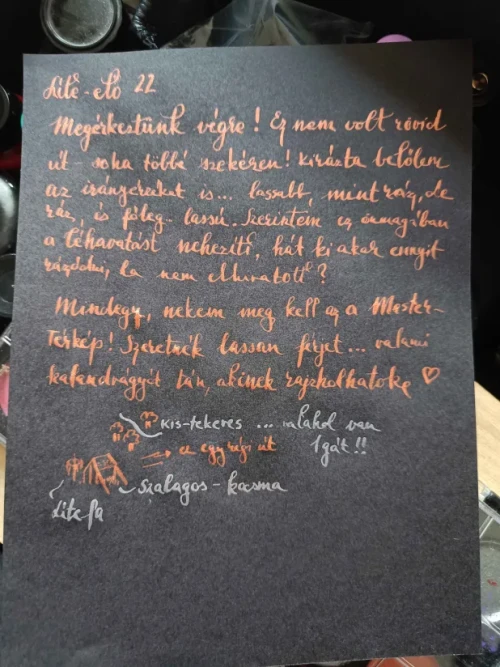 Lite-elő 22
Megérkeztünk végre! Ez nem volt rövid
út - soha többé szekéren! Kirázta belőlem
az irányérzéket is... lassabb, mint ráz, de
ráz, is főleg lassú. Szerintem ez önmagában
a léhavatást nehezíti, hát ki akar ennyit
rázódni, ha nem elhivatott?
Mindegy, nekem meg kell az a Mester-
Térkép! Szeretnék lassan férjet... valami
kalandvágyót tán, akinek rajzolhatok
Kis-tekeres ... valahol van
1 gát!!
ez egy régi út
Szalagos-kocsma
Litefa